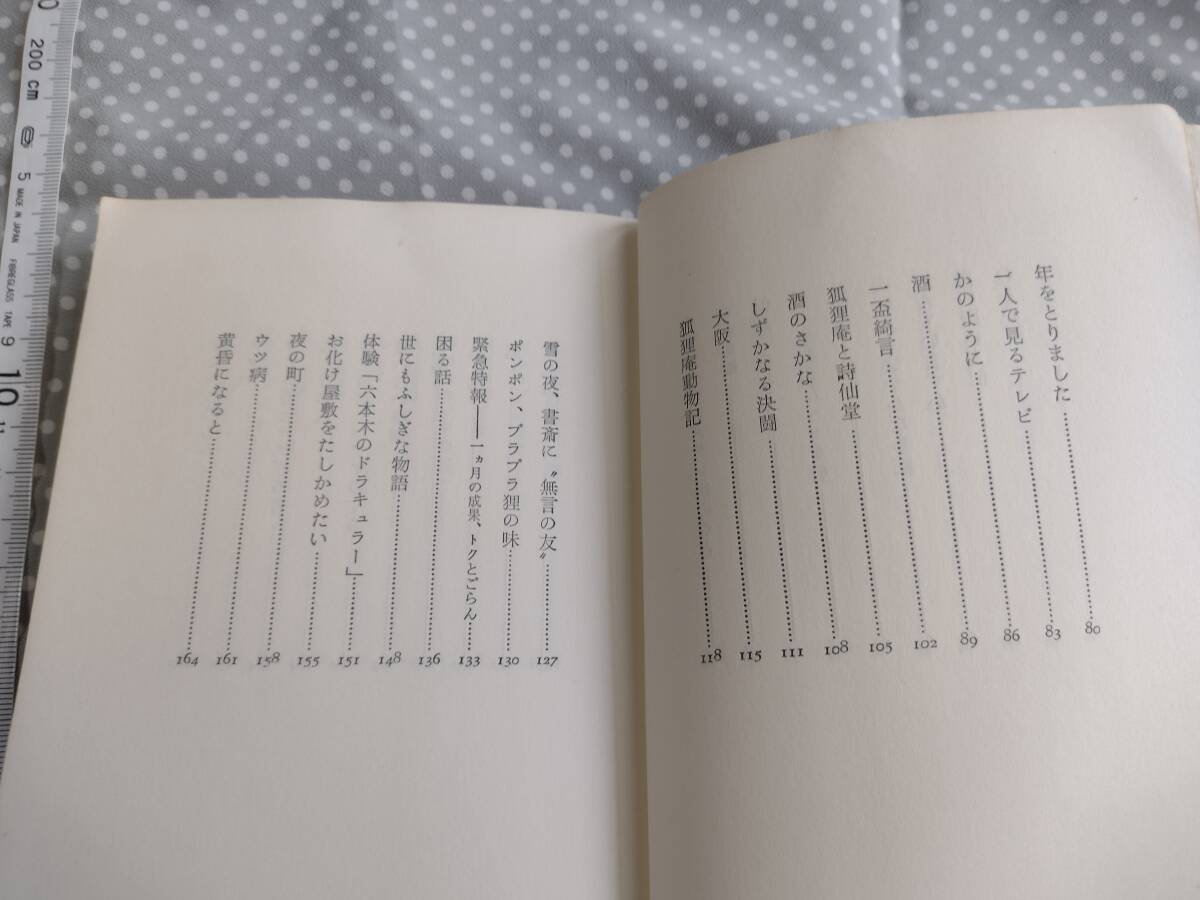 年をとりました……80
一人で見るテレビ……83
かのように……86
酒……89
一盃綺言……102
狐狸庵と詩仙堂……105
酒のさかな……108
しずかなる決闘……111
大阪……115
狐狸庵動物記……118
雪の夜、書斎に〝無言の友〟……127
ポンポン、プラプラ狸の味……130
緊急特報——一ヵ月の成果、トクとごらん……133
困る話……136
世にもふしぎな物語……148
体験「六本木のドラキュラー」……151
お化け屋敷をたしかめたい……155
夜の町……158
ウツ病……161
黄昏になると……164
200 cm
5
MADE IN JAPAN
FIBREGLASS TAPE
9
10
11